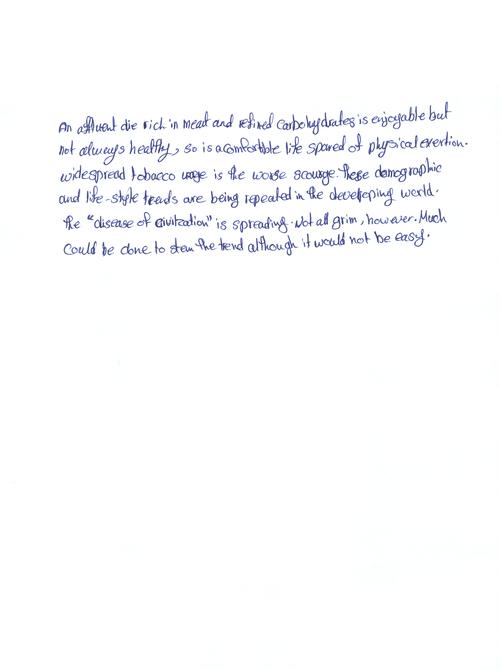 An affluent die rich in meat and refined carbohydrates is enjoyable but
not always healthy, so is a comfortble life spared of physical exertion.
widespread tobacco usage is the worse scourge. these demographic
and life-style trends are being repeated in the developing world.
the "disease of civilization" is spreading. Not all grim, however. Much
could be done to stem the trend although it would not be easy.